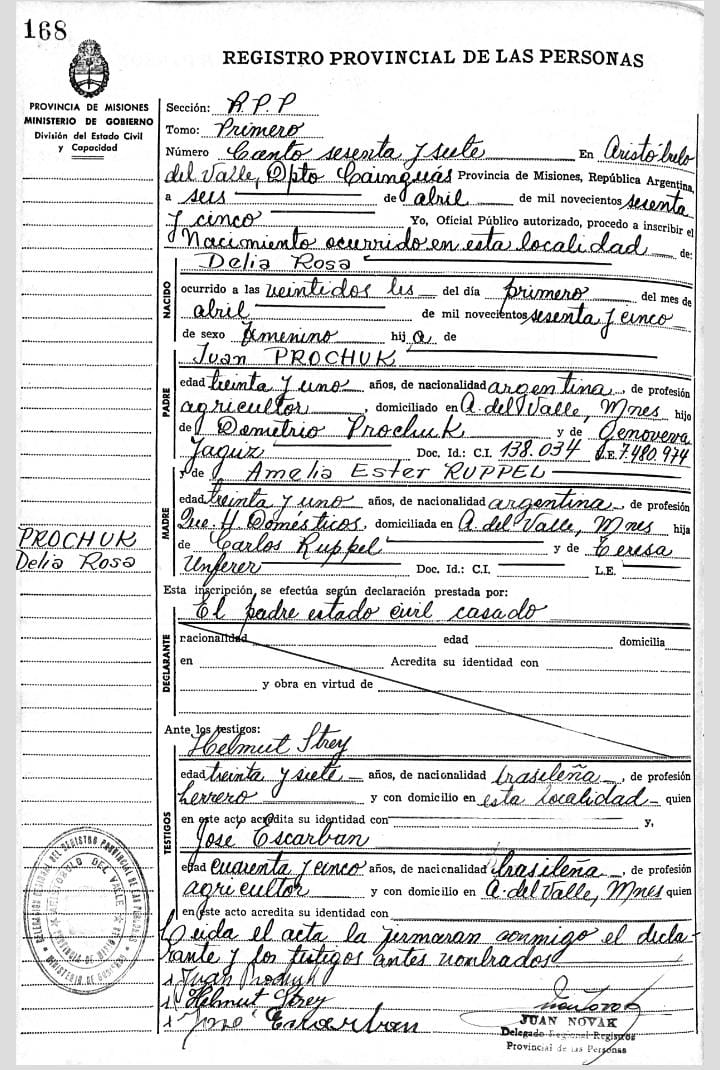 168
REGISTRO PROVINCIAL DE LAS PERSONAS
PROVINCIA DE MISIONES
MINISTERIO DE GOBIERNO
División del Estado Civil
y Capacidad
Sección: R.P.P
Tomo: Primero
Número Ciento sesenta y siete En Aristóbulo
del Valle, Dpto Cainguás Provincia de Misiones, República Argentina,
a seis de abril de mil novecientos sesenta
y cinco Yo, Oficial Público autorizado, procedo a inscribir el
Nacimiento ocurrido en esta localidad de:
Delia Rosa
NACIDO
ocurrido a las veintidos hs del día primero del mes de
abril de mil novecientos sesenta y cinco
de sexo femenino hij a de
Juan PROCHUK
PADRE
edad treinta y uno años, de nacionalidad argentina, de profesión
agricultor, domiciliado en A. del Valle, Mnes hijo
de Demetrio Prochuk y de Genoveva
Jaguiz Doc. Id.: C.I. 138.034 L.E. 7.480.974
y de Amelia Ester RUPPEL
MADRE
edad treinta y uno años, de nacionalidad argentina, de profesión
Que. H. Domésticos, domiciliada en A. del Valle, Mnes hija
de Carlos Ruppel y de Teresa
Unferer Doc. Id.: C.I. L.E.
PROCHUK
Delia Rosa
Esta inscripción se efectúa según declaración prestada por:
El padre estado civil casado
DECLARANTE
nacionalidad edad domicilia
en Acredita su identidad con
y obra en virtud de
Ante los testigos:
Helmut Strey
TESTIGOS
edad treinta y siete años, de nacionalidad brasileña, de profesión
herrero y con domicilio en esta localidad quien
en este acto acredita su identidad con y,
José Escarban
edad cuarenta y cinco años, de nacionalidad brasileña, de profesión
agricultor y con domicilio en A. del Valle, Mnes quien
en este acto acredita su identidad con
Leida el acta la firmaran conmigo el decla-
rante y los testigos antes nombrados
Juan Prochuk
Helmut Strey
José Escarban
JUAN NOVAK
Delegado Regional Registros
Provincial de las Personas